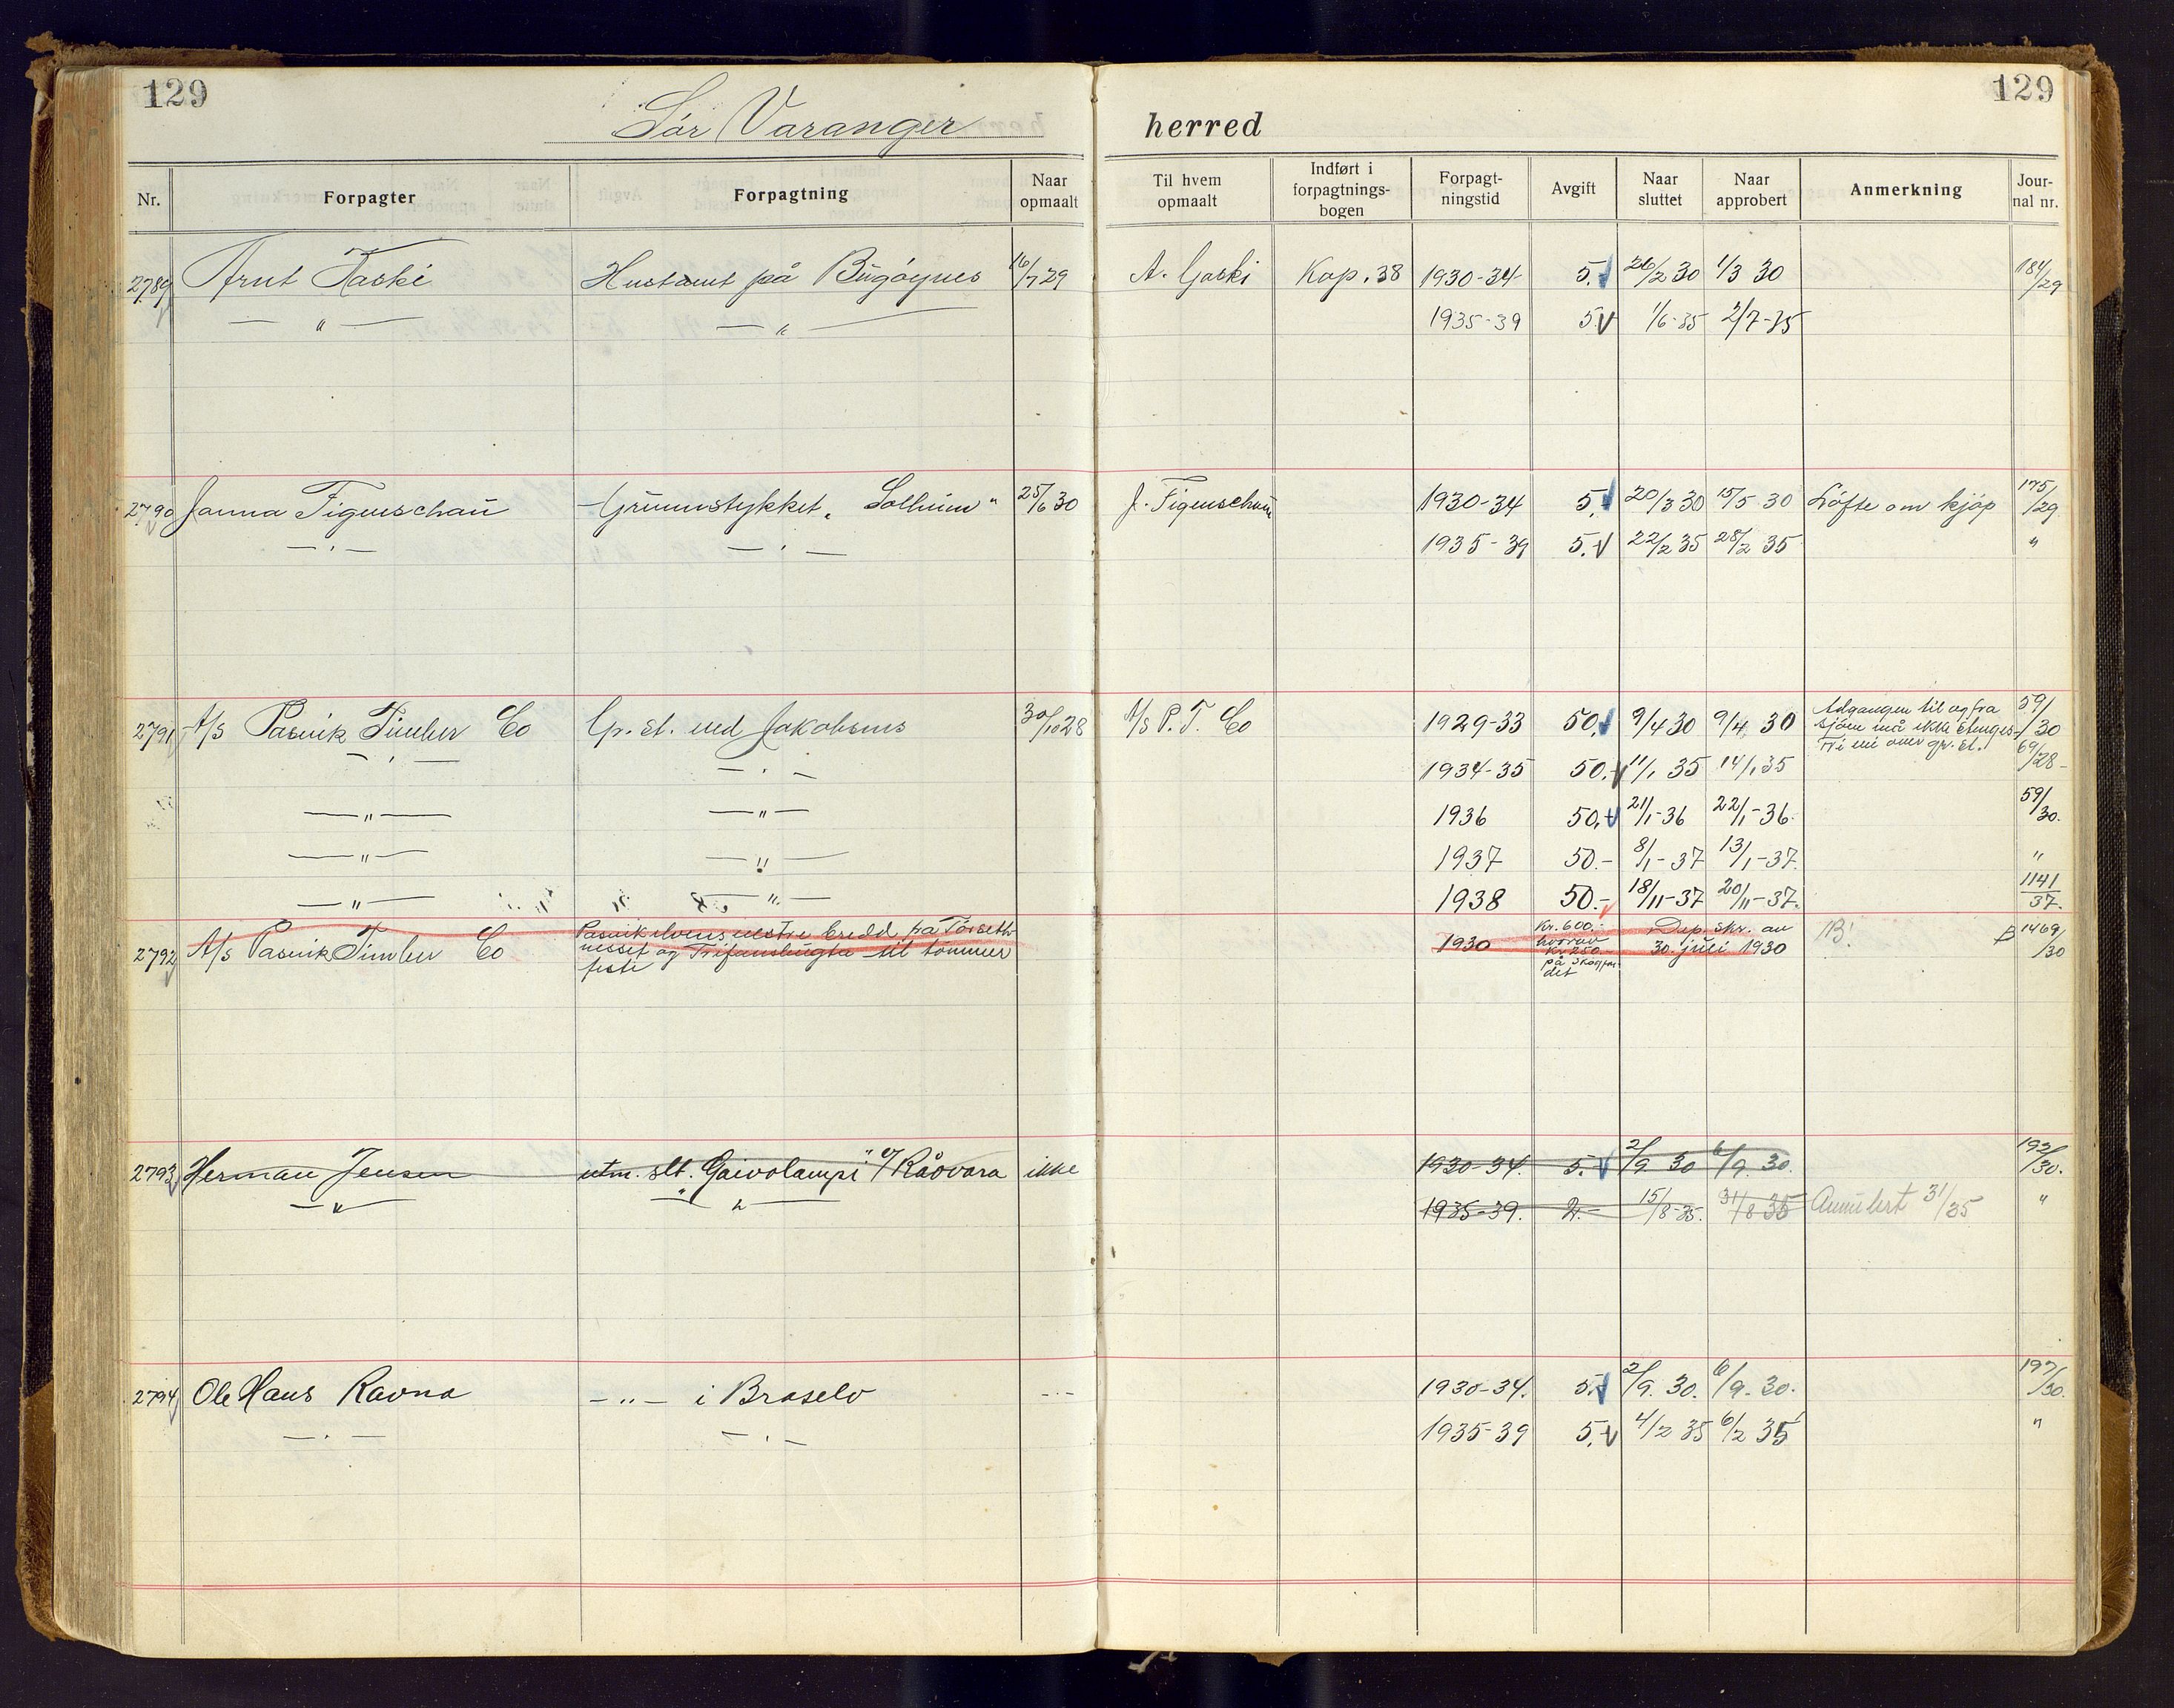 129
129
Sör Varanger herred
Nr. Forpagter Forpagtning Naar opmaalt Til hvem opmaalt Indført i forpagtnings-bogen Forpagt-ningstid Avgift Naar sluttet Naar approbert Anmerkning Jour-nal nr.
2789 Arnt Kaski Hustomt på Bugøynes 16/7 29 A. Gaski Kop. 38 1930-34 5.- 26/2 30 1/3 30 184/29
— " — — " — 1935-39 5 1/6-35 2/7-35
2790 Janna Figenschau Grunnstykket „Solheim" 25/6 30 J. Figenschau 1930-34 5.- 20/3 30 15/5 30 Löfte om kjöp 175/29
— " — — " — 1935-39 5.- 22/2 35 28/2 35 "
2791 A/s Pasvik Timber Co Gr. st. ved Jakobsnes 30/10 28 A/s P. T. Co 1929-33 50.- 9/4 30 9/4 30 Adgangen til og fra
sjöen må ikke stenges 59/30
Fri vei over gr. st. 69/28
— " — — " — 1934-35 50.- 11/1 35 14/1 35
— " — — " — 1936 50.- 21/1-36 22/1-36. 59/30.
— " — — " — 1937 50.- 8/1-37 13/1-37. "
— " — — " — 1938 50.- 18/11-37 20/11-37. 1141/37.
2792 A/s Pasvik Timber Co Pasvikelvens vestre bredd fra
nesset og til tömmer
feste 1930 Kr. 600.-
hvorav
Kr 250
på
det Dep. skr. av
30. juli 1930 B! 1469/30
2793 Herman Jensen utm. slt. „Gaivolampi" v/ Råovara ikke 1930-34. 5.- 2/9 30 6/9 30. 192/30.
— " — — " — 1935-39. 2.- 15/8-35. 31/8 35 Annulert 31/35 "
2794 Ole Hans Ravna — " — i Braselv - " - 1930-34. 5.- 2/9. 30. 6/9-30. 197/30.
— " — — " — 1935-39 5.- 4/2 35 6/2 35 "